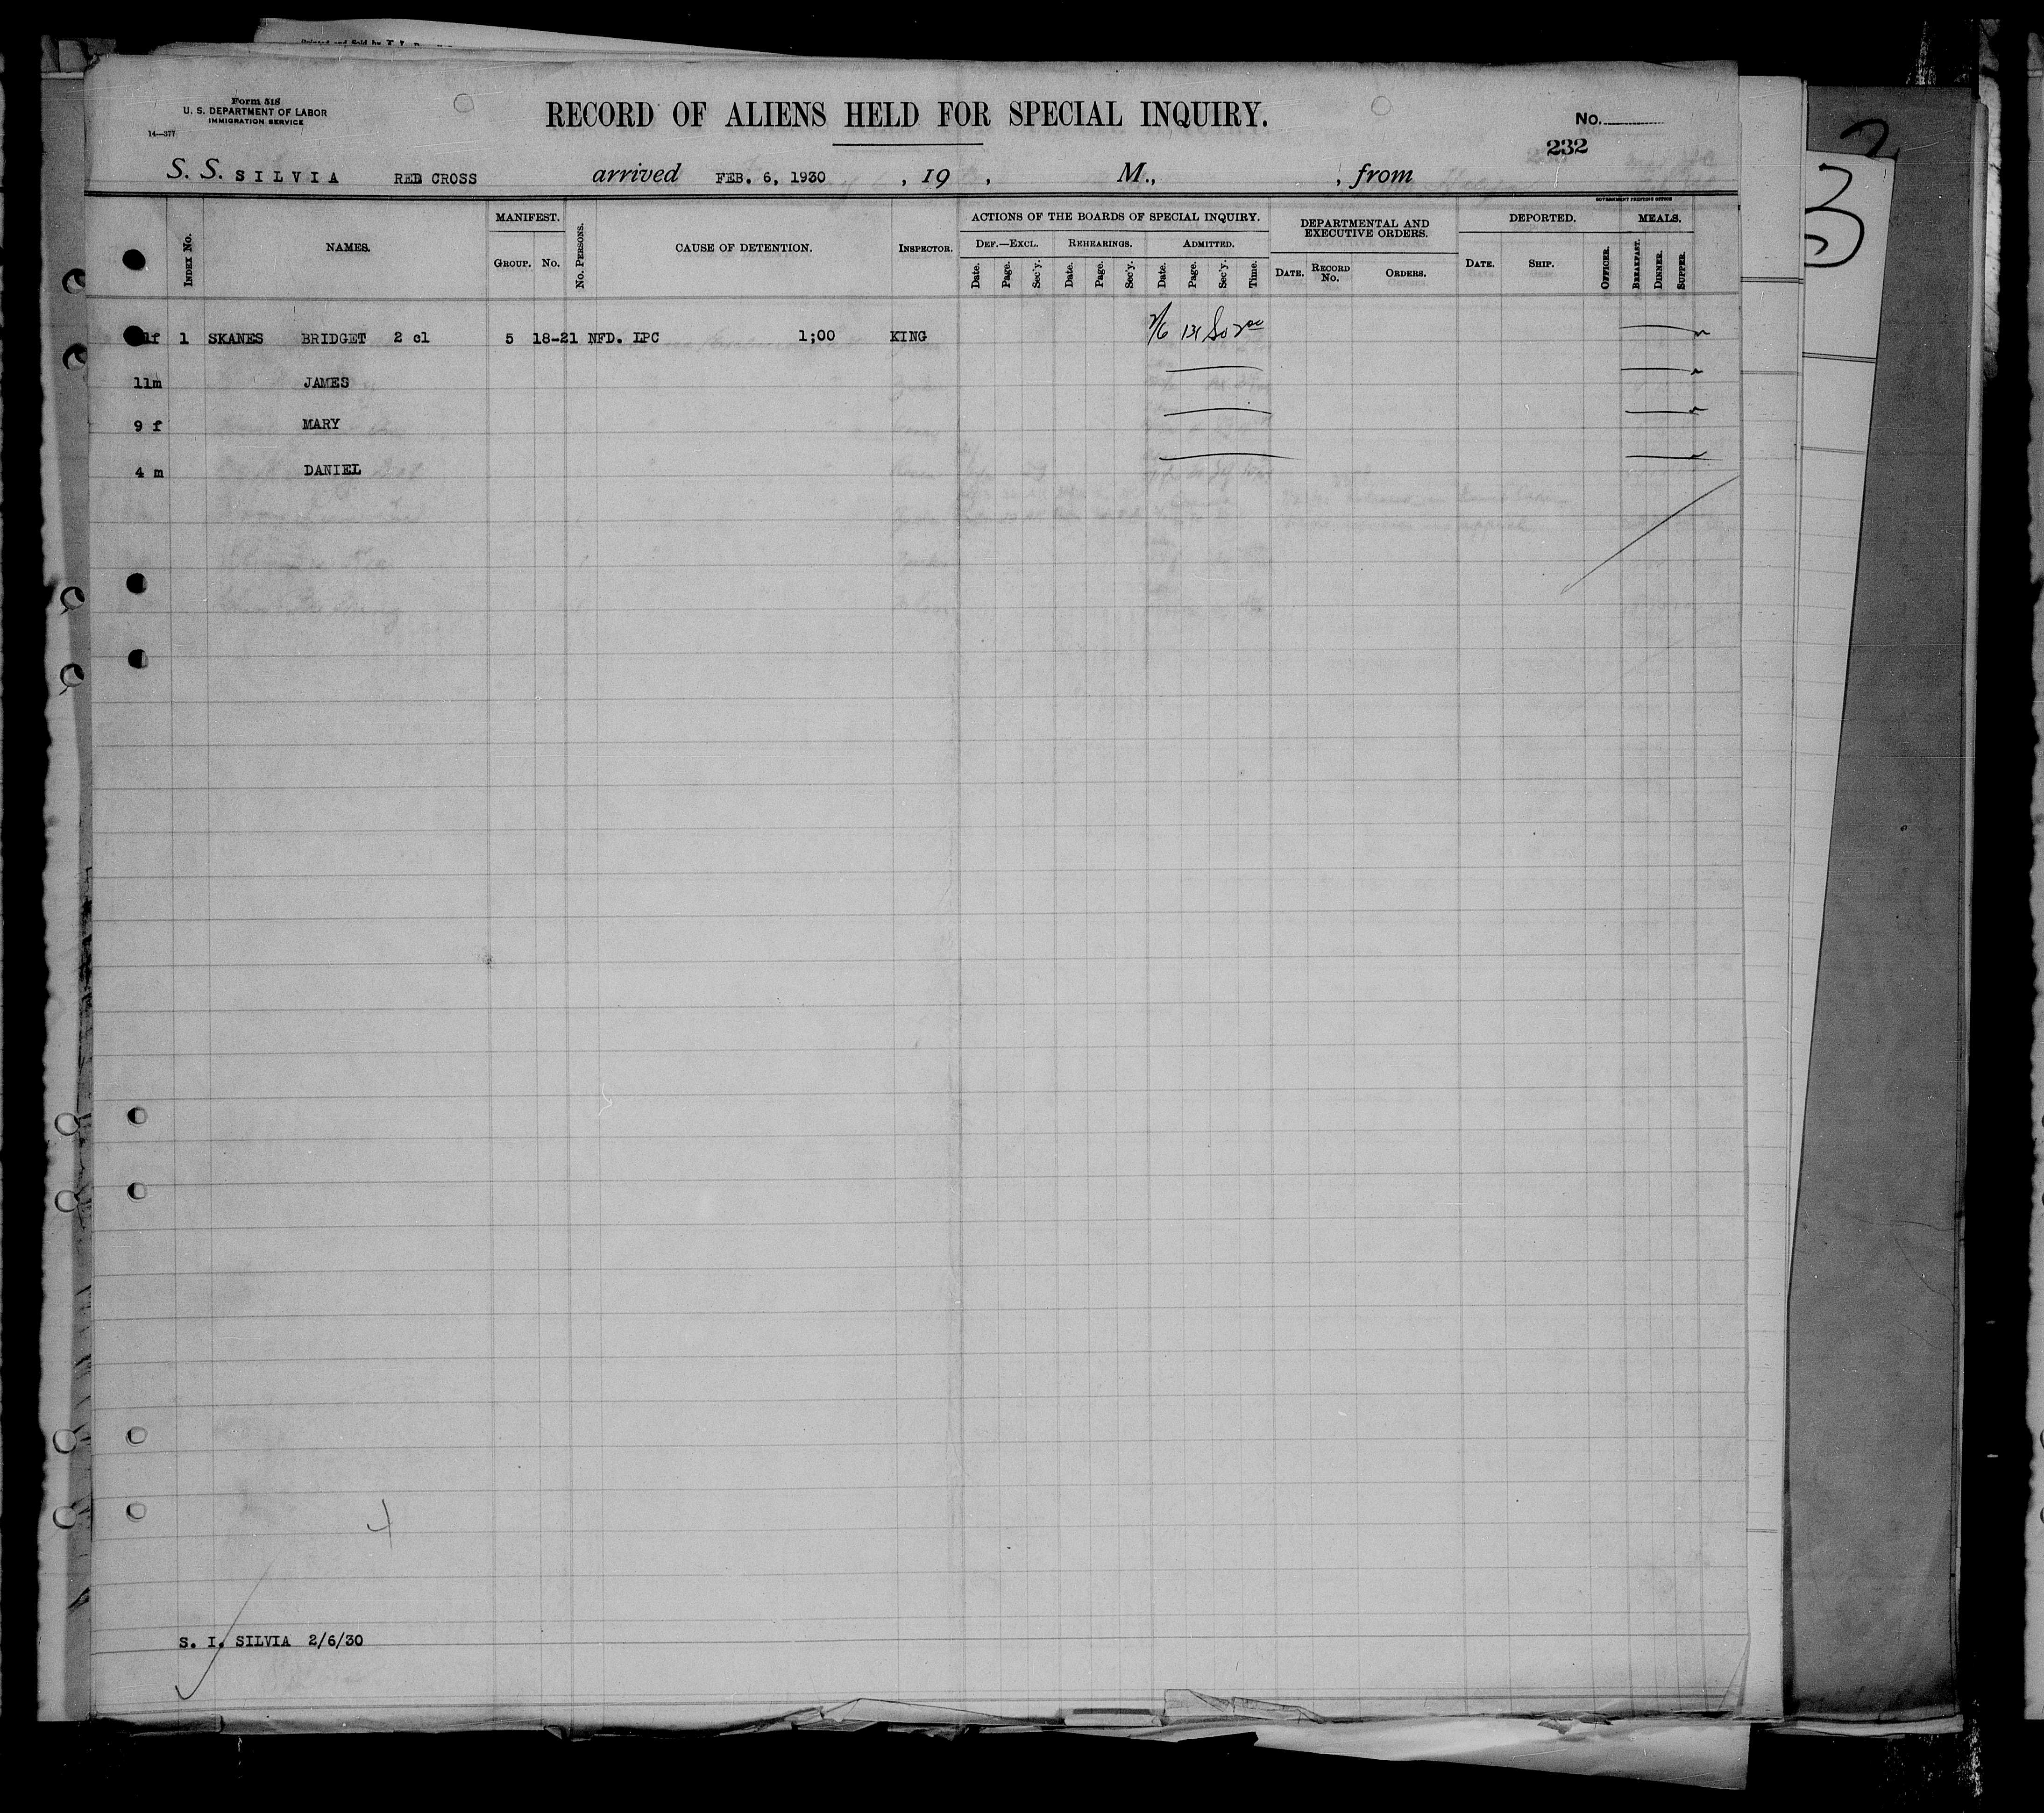 Form 518
U. S. DEPARTMENT OF LABOR
IMMIGRATION SERVICE
14—377
RECORD OF ALIENS HELD FOR SPECIAL INQUIRY.
No.
232
S. S. SILVIA RED CROSS arrived FEB. 6, 1930 , 19 , M., , from
GOVERNMENT PRINTING OFFICE
INDEX NO. NAMES. MANIFEST. GROUP. NO. NO. PERSONS. CAUSE OF DETENTION. INSPECTOR. ACTIONS OF THE BOARDS OF SPECIAL INQUIRY. DEF.—EXCL. Date. Page. Sec'y. REHEARINGS. Date. Page. Sec'y. ADMITTED. Date. Page. Sec'y. Time. DEPARTMENTAL AND EXECUTIVE ORDERS. DATE. RECORD NO. ORDERS. DEPORTED. DATE. SHIP. OFFICER. MEALS. BREAKFAST. DINNER. SUPPER.
1 SKANES BRIDGET 2 cl 5 18-21 NFD. LPC 1;00 KING 2/6
11m JAMES
9 f MARY
4 m DANIEL
4
S. I. SILVIA 2/6/30
3
2